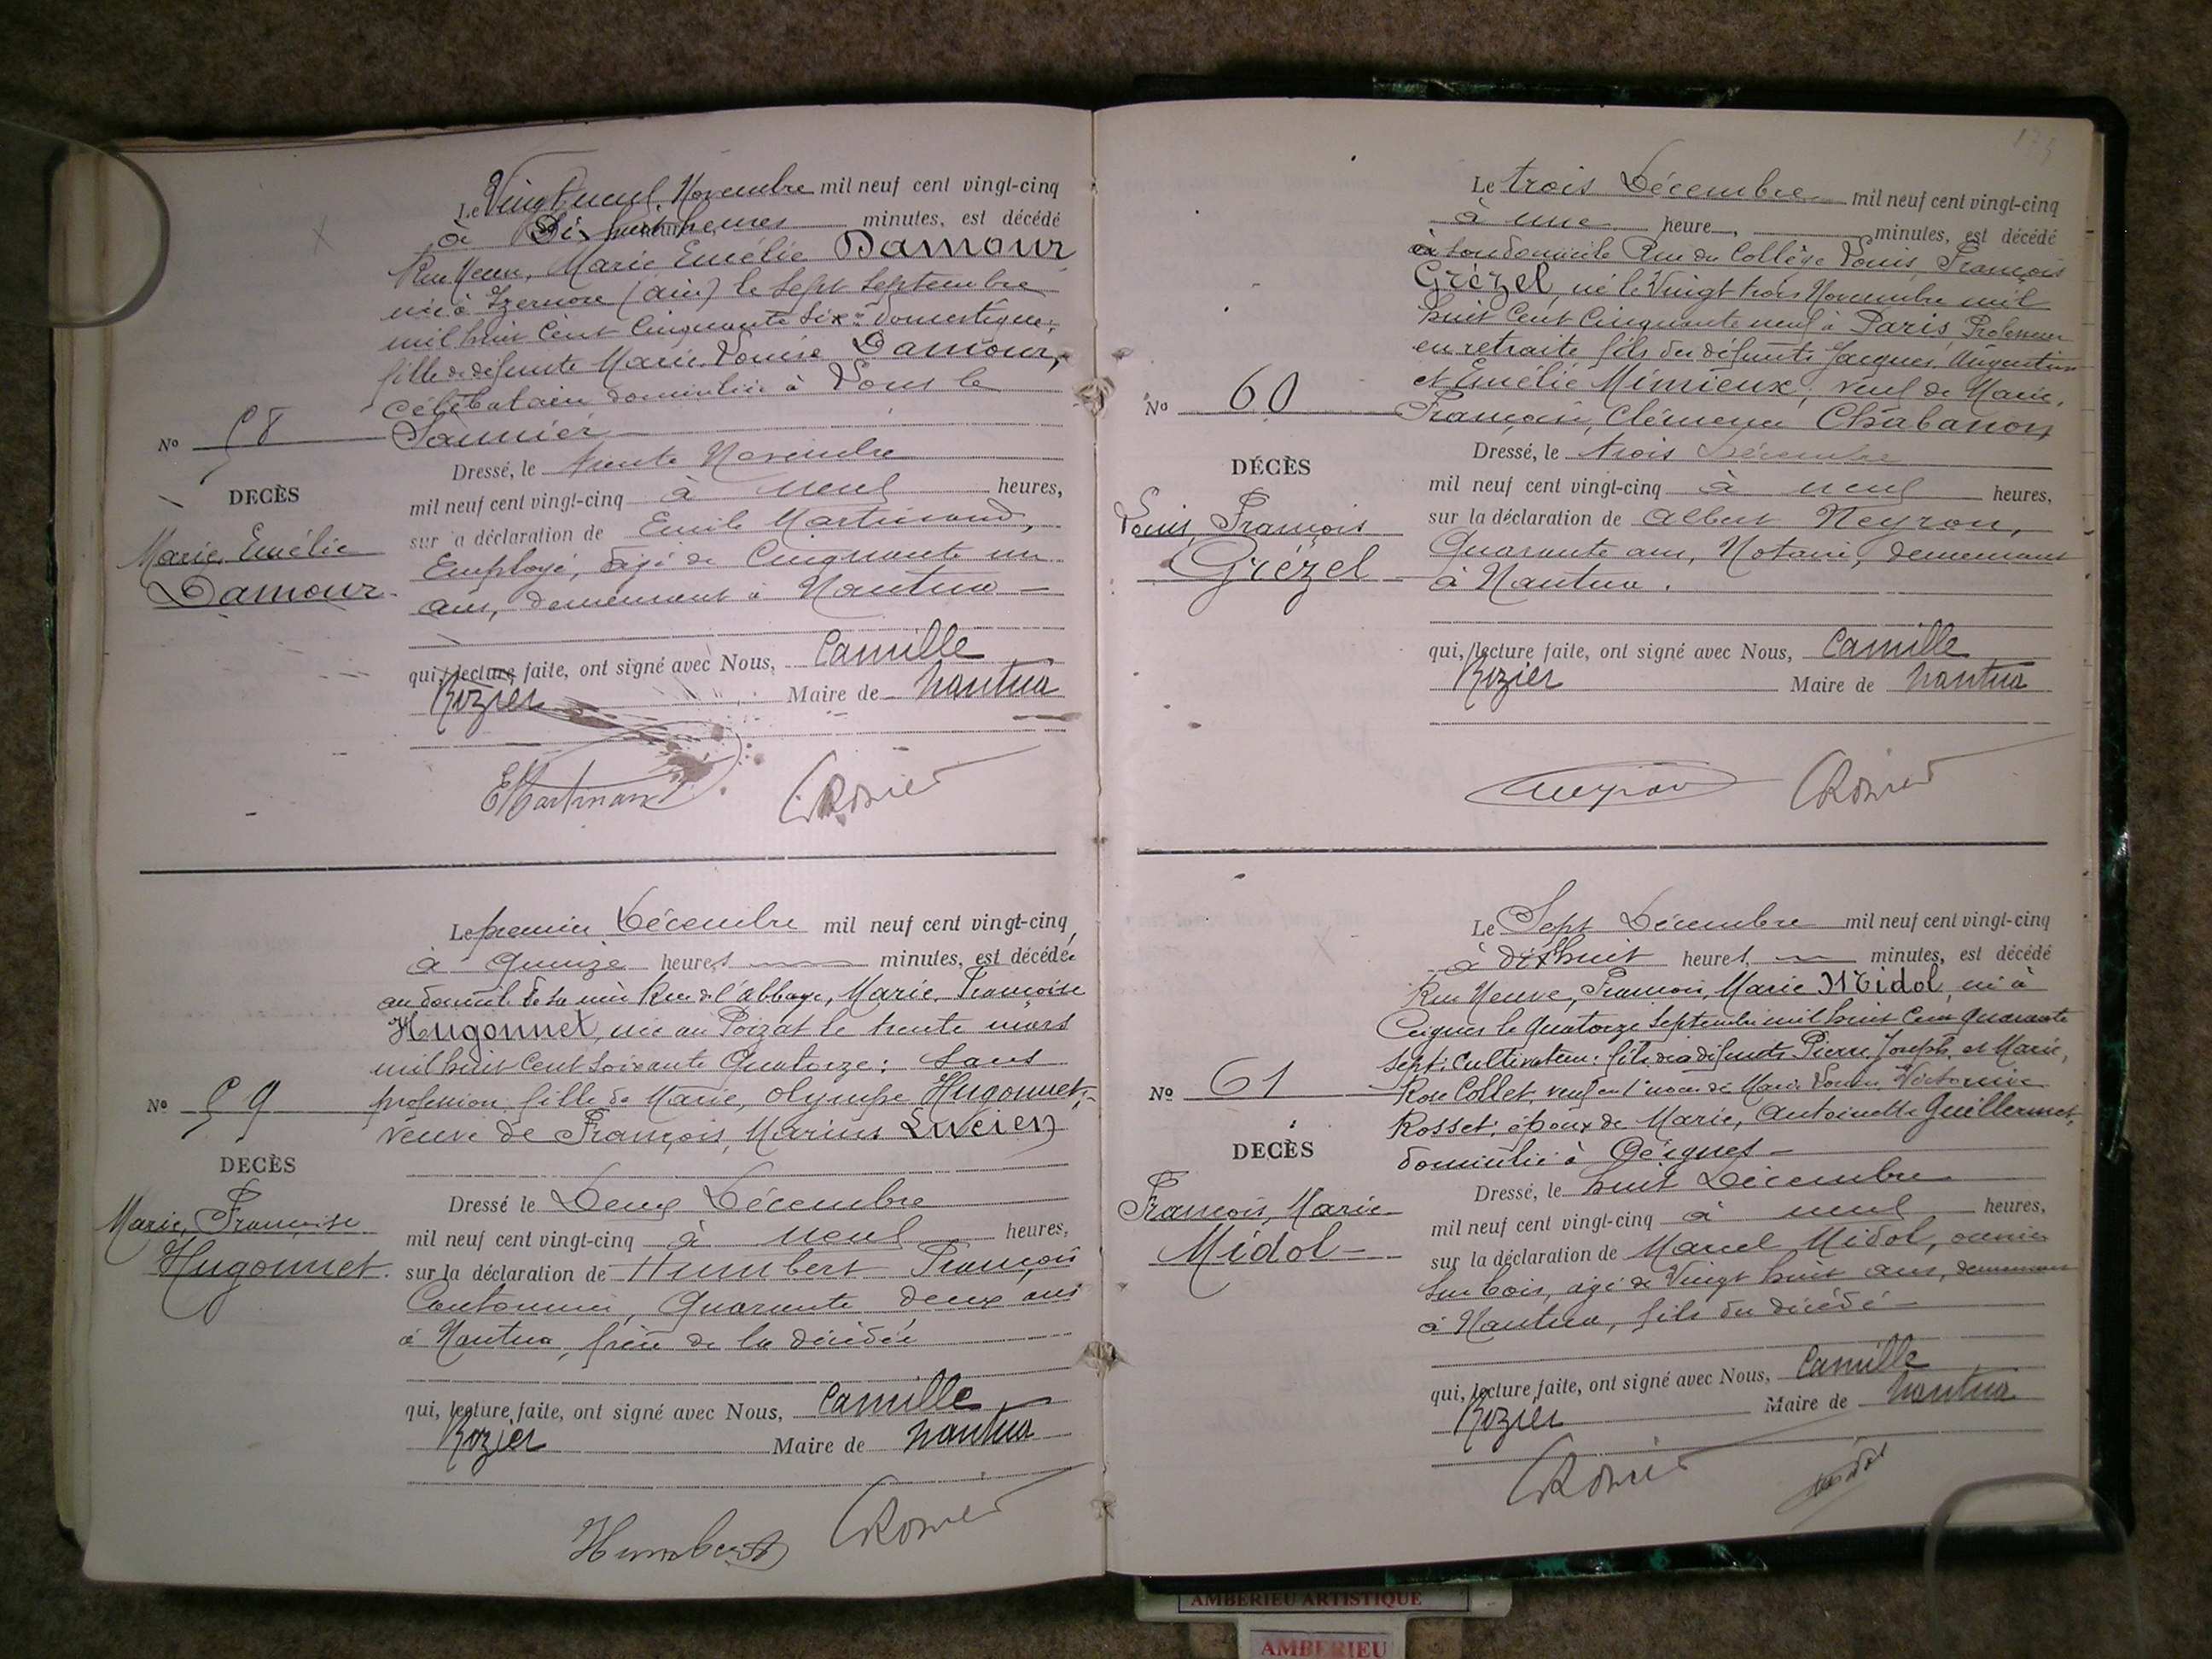 Le Vingt neuf Novembre mil neuf cent vingt-cinq
à Dix huit heures minutes, est décédé
Rue Neuve, Marie Emélie Damour
née à Izernore (Ain) le sept Septembre
mil huit cent cinquante six: domestique;
fille de défunte Marie Louise Damour,
Célibataire domiciliée à Lons le
Saunier
No 58
DECÈS
Marie Emélie
Damour
Dressé, le trente Novembre
mil neuf cent vingt-cinq à neuf heures,
sur la déclaration de Emile Martinand,
Employé, âgé de Cinquante un
ans, demeurant à Nantua
qui, lecture faite, ont signé avec Nous, Camille
Rozier Maire de Nantua
EMartinand CRozier
Le premier Décembre mil neuf cent vingt-cinq,
à Quinze heures minutes, est décédée
au domicile de sa mère Rue de l'abbaye, Marie, Françoise
Hugonnet, née au Poizat le trente mars
mil huit cent soixante Quatorze: sans
profession fille de Marie, Olympe Hugonnet,
veuve de François, Marius
No 59
DECÈS
Marie, Françoise
Hugonnet
Dressé le Deux Décembre
mil neuf cent vingt-cinq à neuf heures,
sur la déclaration de Humbert François
Cantonnier, Quarante deux ans
à Nantua, frère de la décédée
qui, lecture faite, ont signé avec Nous, Camille
Rozier Maire de Nantua
Humbert CRozier
Le trois Décembre mil neuf cent vingt-cinq
à une heure, minutes, est décédé
à son domicile Rue du Collège Louis, François
Grézel, né le Vingt trois Novembre mil
huit Cent Cinquante neuf à Paris, Professeur
en retraite fils des défunts Jacques, Augustin
et Emélie Mimieux, veuf de Marie,
Françoise, Clémence Chabanon
No 60
DÉCÈS
Louis, François
Grézel
Dressé, le trois Décembre
mil neuf cent vingt-cinq à neuf heures,
sur la déclaration de Albert Neyron,
Quarante ans, Notaire, demeurant
à Nantua.
qui, lecture faite, ont signé avec Nous, Camille
Rozier Maire de Nantua
Neyron CRozier
Le Sept Décembre mil neuf cent vingt-cinq
à dix huit heures, minutes, est décédé
Rue Neuve, François, Marie Midol, né à
Ceignes le Quatorze Septembre mil huit Cent Quarante
sept: Cultivateur: fils des défunts Pierre Joseph, et Marie,
Rose Collet, veuf en 1ères noces de Marie Louise, Victorine
Rosset, époux de Marie, Antoinette Guillermet,
domicilié à Ceignes
No 61
DECÈS
François, Marie
Midol
Dressé, le huit Décembre
mil neuf cent vingt-cinq à neuf heures,
sur la déclaration de Marcel Midol, ouvrier
sur bois, âgé de Vingt huit ans, demeurant
à Nantua, fils du décédé
qui, lecture faite, ont signé avec Nous, Camille
Rozier Maire de Nantua
CRozier Midol
AMBERIEU ARTISTIQUE
AMBERIEU